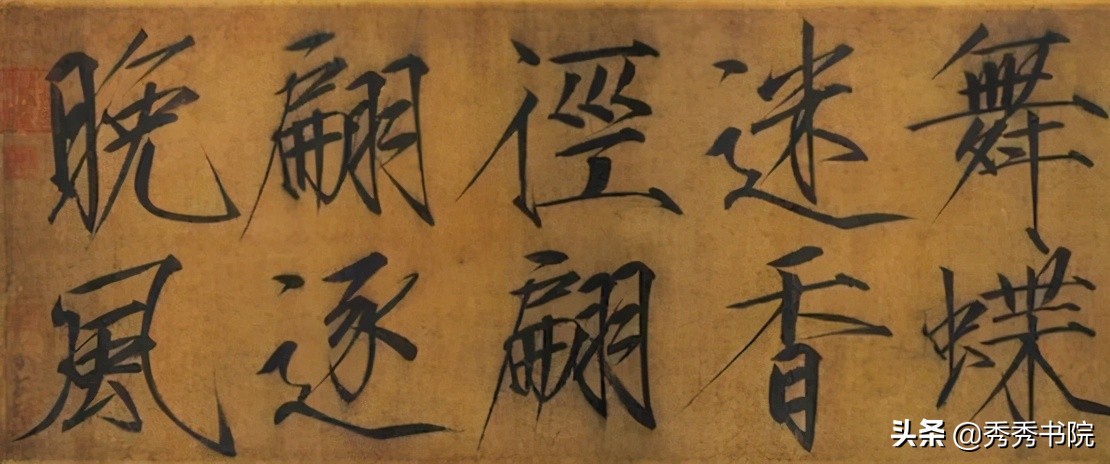 舞蝶
迷香
徑翩
翩逐
晚風
头条 @秀秀书院